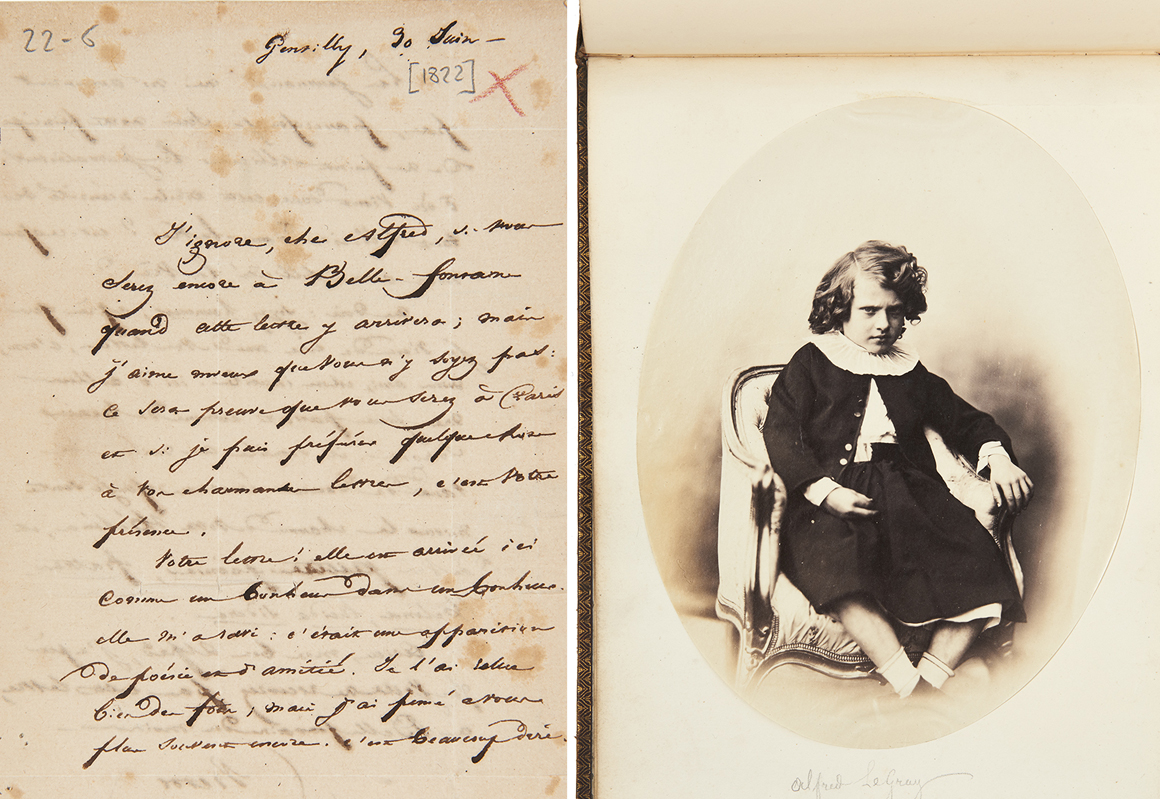 22-6
Gentilly, 30 Juin —
[1822]
J'ignore, cher Alfred, si vous
serez encore à Belle-fontaine
quand cette lettre y arrivera ; mais
j'aime mieux que vous n'y soyez pas :
ce sera preuve que vous serez à Paris
et si je puis préférer quelque chose
à vos charmantes lettres, c'est votre
présence.
Votre lettre ! elle est arrivée ici
comme un bonheur dans un bonheur.
elle m'a ravi : c'était une apparition
de poésie et d'amitié. Je l'ai relue
bien des fois, mais j'ai pensé à vous
plus souvent encore. c'est beaucoup dire.
Alfred LeGray